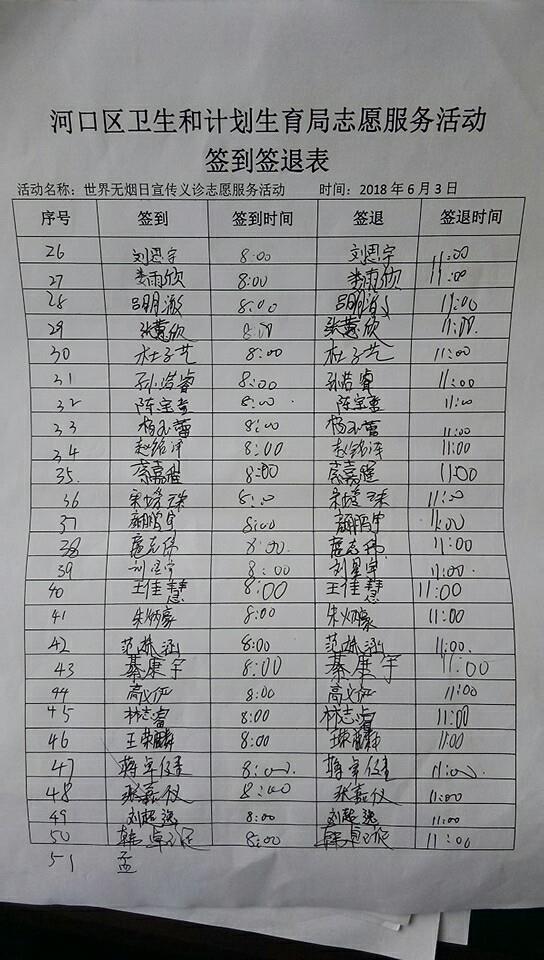 河口区卫生和计划生育局志愿服务活动
签到签退表
活动名称：世界无烟日宣传义诊志愿服务活动 时间：2018年6月3日
序号 签到 签到时间 签退 签退时间
26 刘思宇 8:00 刘思宇 11:00
27 娄雨欣 8:00 娄雨欣 11:00
28 吕明澈 8:00 吕明澈 11:00
29 张蕙欣 8:00 张蕙欣 11:00
30 杜子艺 8:00 杜子艺 11:00
31 孙浩睿 8:00 孙浩睿 11:00
32 陈宝奎 8:00 陈宝奎 11:00
33 杨孔蕾 8:00 杨孔蕾 11:00
34 赵铭泽 8:00 赵铭泽 11:00
35. 8:00 11:00
36 8:00 11:00
37 8:00 11:00
38 扈志伟 8:00. 扈志伟 11:00
39 刘星宇 8:00 刘星宇 11:00.
40 王佳慧 8:00 王佳慧 11:00
41 朱炳豪 8:00 朱炳豪 11:00
42 范栋涵 8:00 范栋涵 11:00.
43 綦康宇 8:00 綦康宇 11:00
44 高义伋 8:00 高义伋 11:00
45 林志睿 8:00 林志睿 11:00
46 王荣麟 8:00 11:00
47 8:00. 11:00.
48 张嘉仪 8:00 张嘉仪 11:00
49 刘超逸 8:00 刘超逸 11:00
50 韩卓 8:00 韩卓 11:00
51 孟